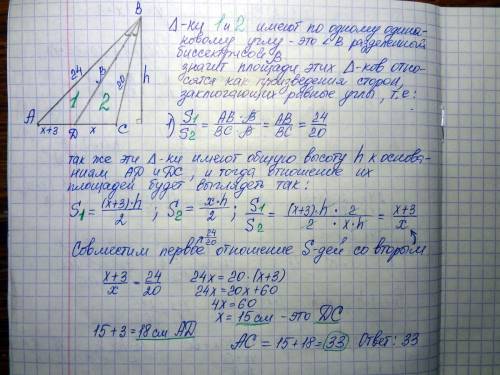 B
24
β
20
h
1
2
A
x+3
D
x
C
Δ-ки 1 и 2 имеют по одному одина-
ковому углу - это ∠B разделенный
биссектрисой β
значит площади этих Δ-ков отно-
сятся как произведения сторон,
заключающих равные углы, т.е:
1) S1/S2 = AB·β/BC·β = AB/BC = 24/20
так же эти Δ-ки имеют общую высоту h к основа-
ниям AD и DC, и тогда отношение их
площадей будет выглядеть так:
S1 = (x+3)·h/2 ; S2 = x·h/2 ; S1/S2 = (x+3)·h/2 · 2/x·h = x+3/x
24/20
Совместим первое отношение S-дей со вторым
x+3/x = 24/20
24x = 20·(x+3)
24x = 20x+60
4x = 60
x = 15 см - это DC
15+3 = 18 см AD
AC = 15+18 = 33
Ответ: 33